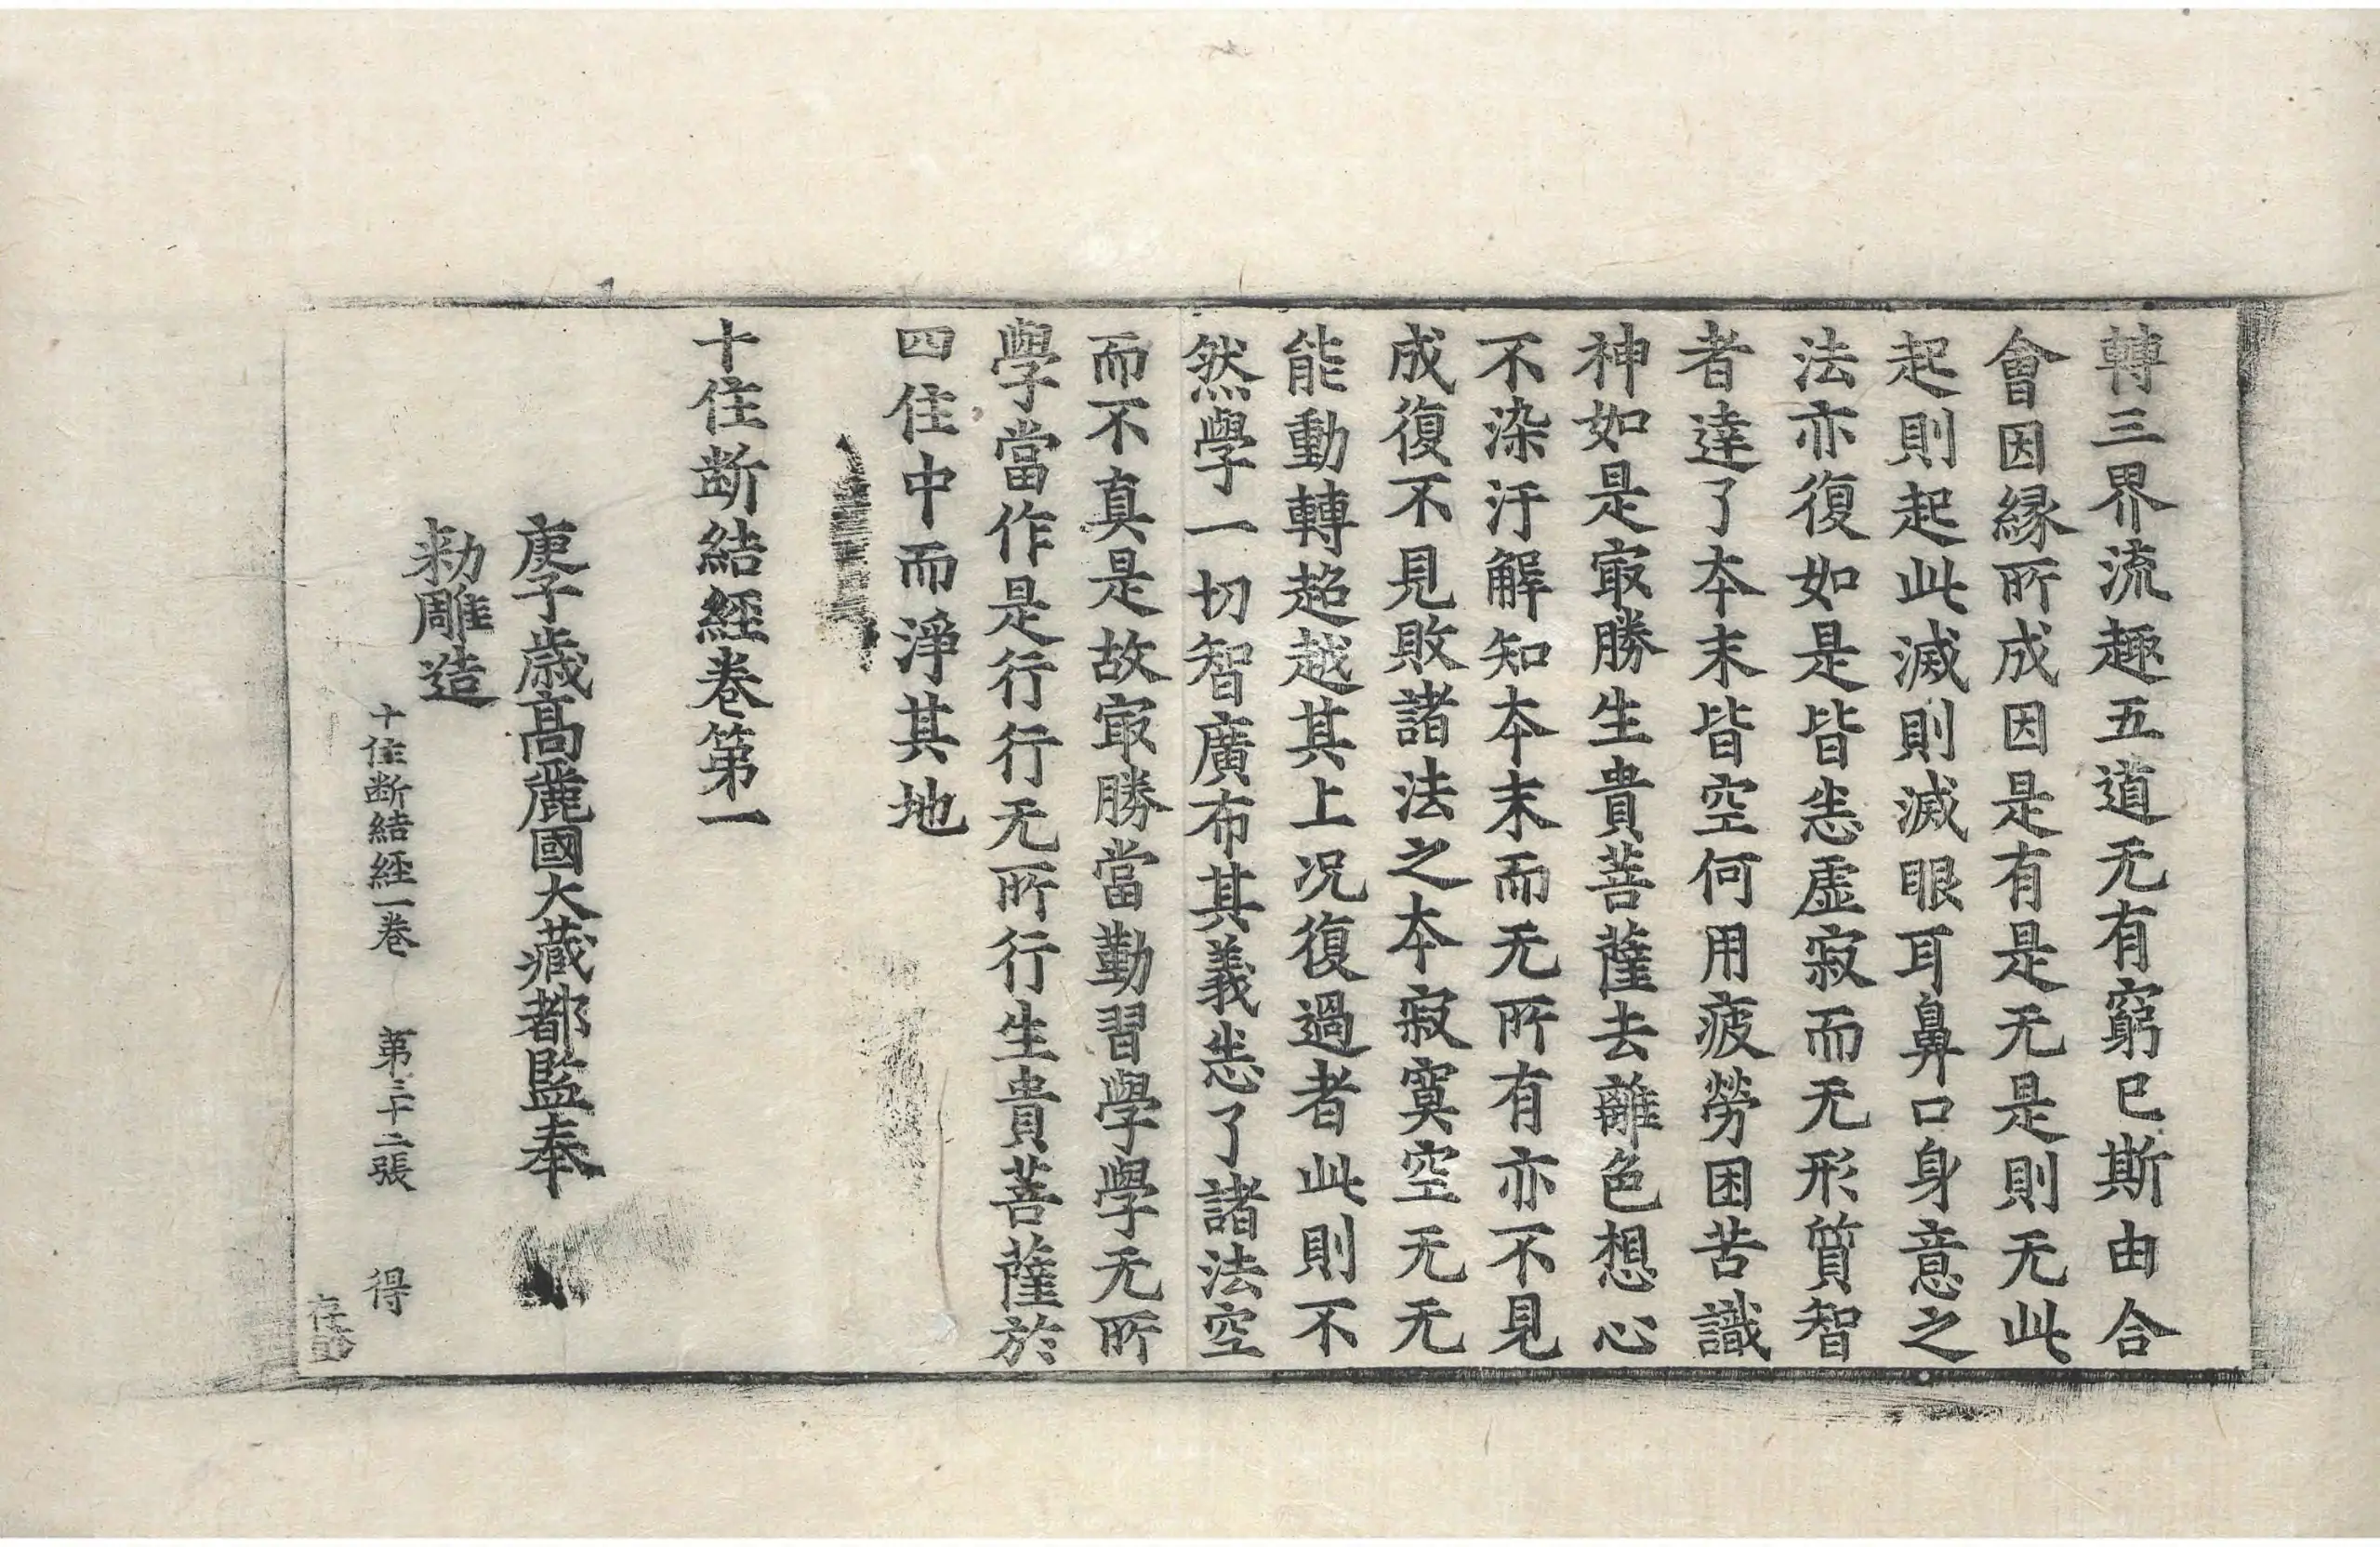 轉三界流趣五道无有窮已斯由合
會因縁所成因是有是无是則无此
起則起此滅則滅眼耳鼻口身意之
法亦復如是皆悉虛寂而无形質智
者達了夲末皆空何用疲勞困苦識
神如是㝡勝生貴菩薩去離色想心
不染汙解知夲末而无所有亦不見
成復不見敗諸法之夲寂寞空无无
能動轉超越其上况復過者此則不
然學一切智廣布其義悉了諸法空
而不真是故㝡勝當勤習學學无所
學當作是行行无所行生貴菩薩於
四住中而淨其地
十住断結經卷第一
庚子歳高麗國大藏都監奉
勑雕造
十住断結經一卷 第三十二張 得